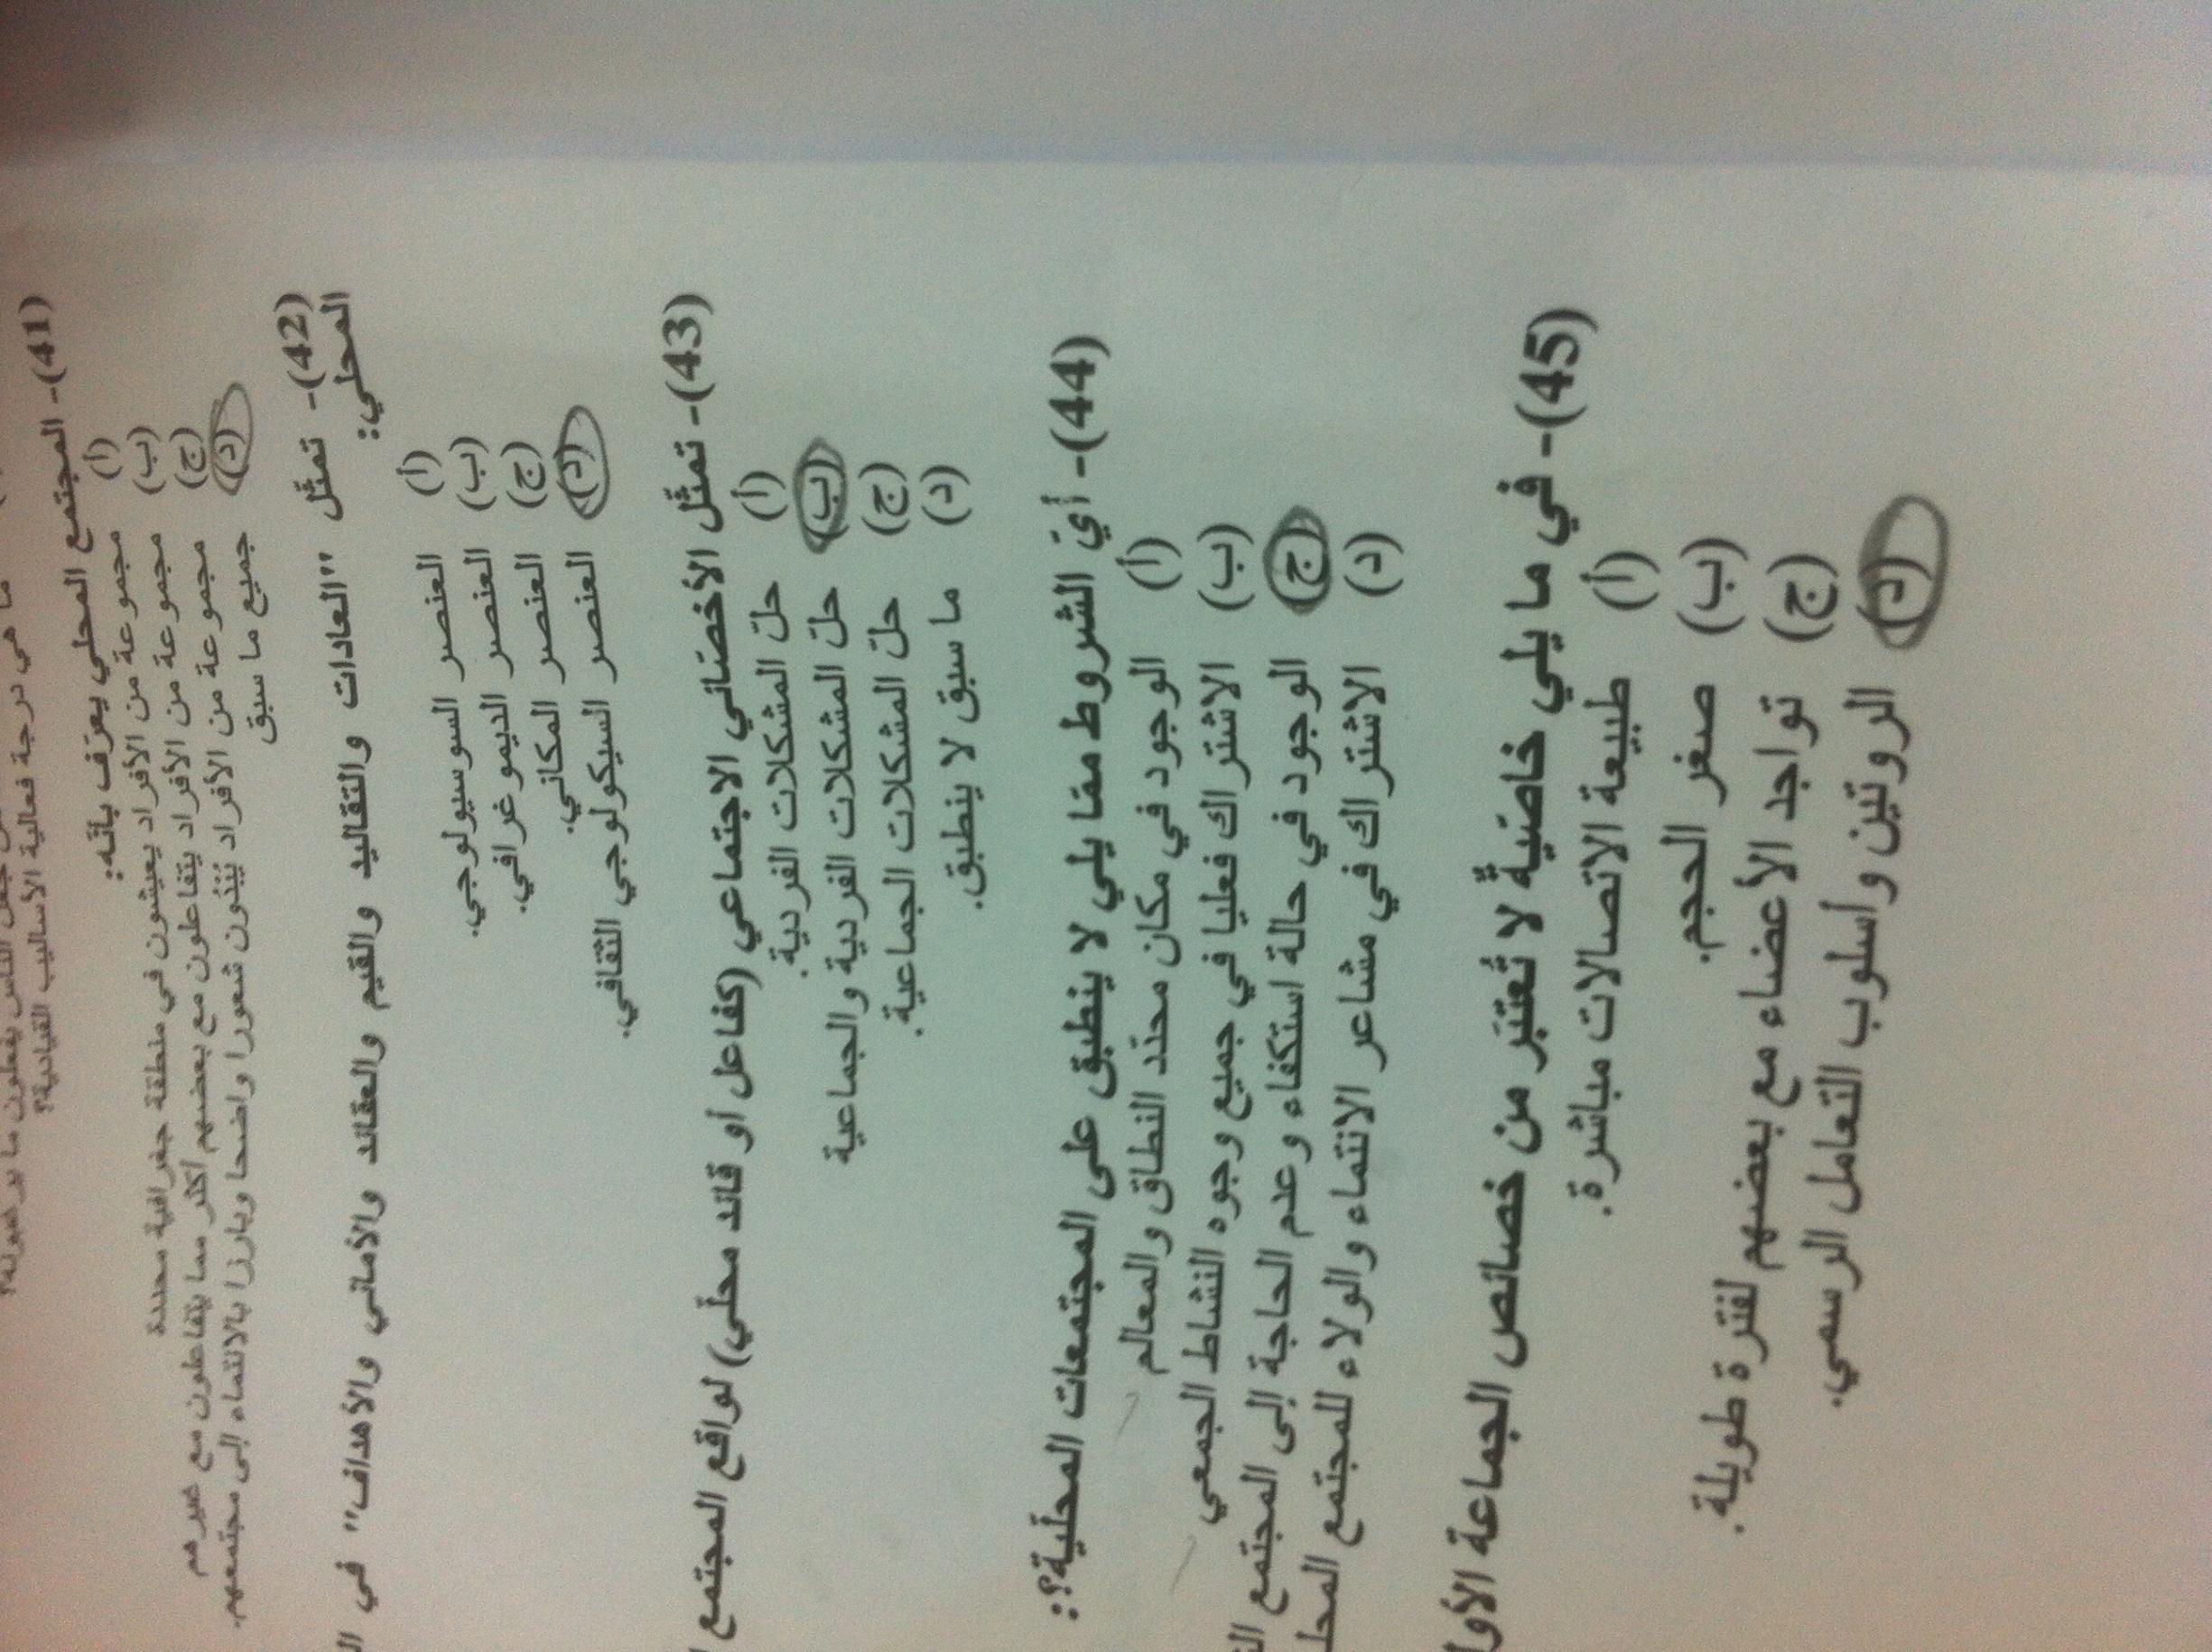 ما هي درجة فعالية الأساليب القيادية؟
(41)- المجتمع المحلي يعرّف بأنّه:
(أ) مجموعة من الأفراد يعيشون في منطقة جغرافية محددة
(ب) مجموعة من الأفراد يتفاعلون مع بعضهم أكثر مما يتفاعلون مع غيرهم
(ج) مجموعة من الأفراد يُبْدُون شعورا واضحا وبارزا بالانتماء إلى مجتمعهم.
(د) جميع ما سبق
(42)- تمثّل "العادات والتقاليد والقيم والعقائد والأماني والأهداف" في
المحلي:
(أ) العنصر السوسيولوجي.
(ب) العنصر الديموغرافي.
(ج) العنصر المكاني.
(د) العنصر السيكولوجي الثقافي.
(43)- تمثّل الأخصّائي الاجتماعي (كفاعل أو قائد محلّي) لواقع المجتمع
(أ) حلّ المشكلات الفردية.
(ب) حلّ المشكلات الفردية والجماعية
(ج) حلّ المشكلات الجماعية.
(د) ما سبق لا ينطبق.
(44)- أيّ الشروط ممّا يلي لا ينطبق على المجتمعات المحلّية؟:
(أ) الوجود في مكان محدّد النطاق والمعالم
(ب) الاشتراك فعليا في جميع وجوه النشاط الجمعي
(ج) الوجود في حالة استكفاء وعدم الحاجة إلى المجتمع
(د) الاشتراك في مشاعر الانتماء والولاء للمجتمع
(45)- في ما يلي خاصّيةٌ لا تُعتبَر من خصائص الجماعة
(أ) طبيعة الاتصالات مباشرة.
(ب) صغر الحجم.
(ج) تواجد الأعضاء مع بعضهم لفترة طويلة.
(د) الروتين وأسلوب التعامل الرسمي.